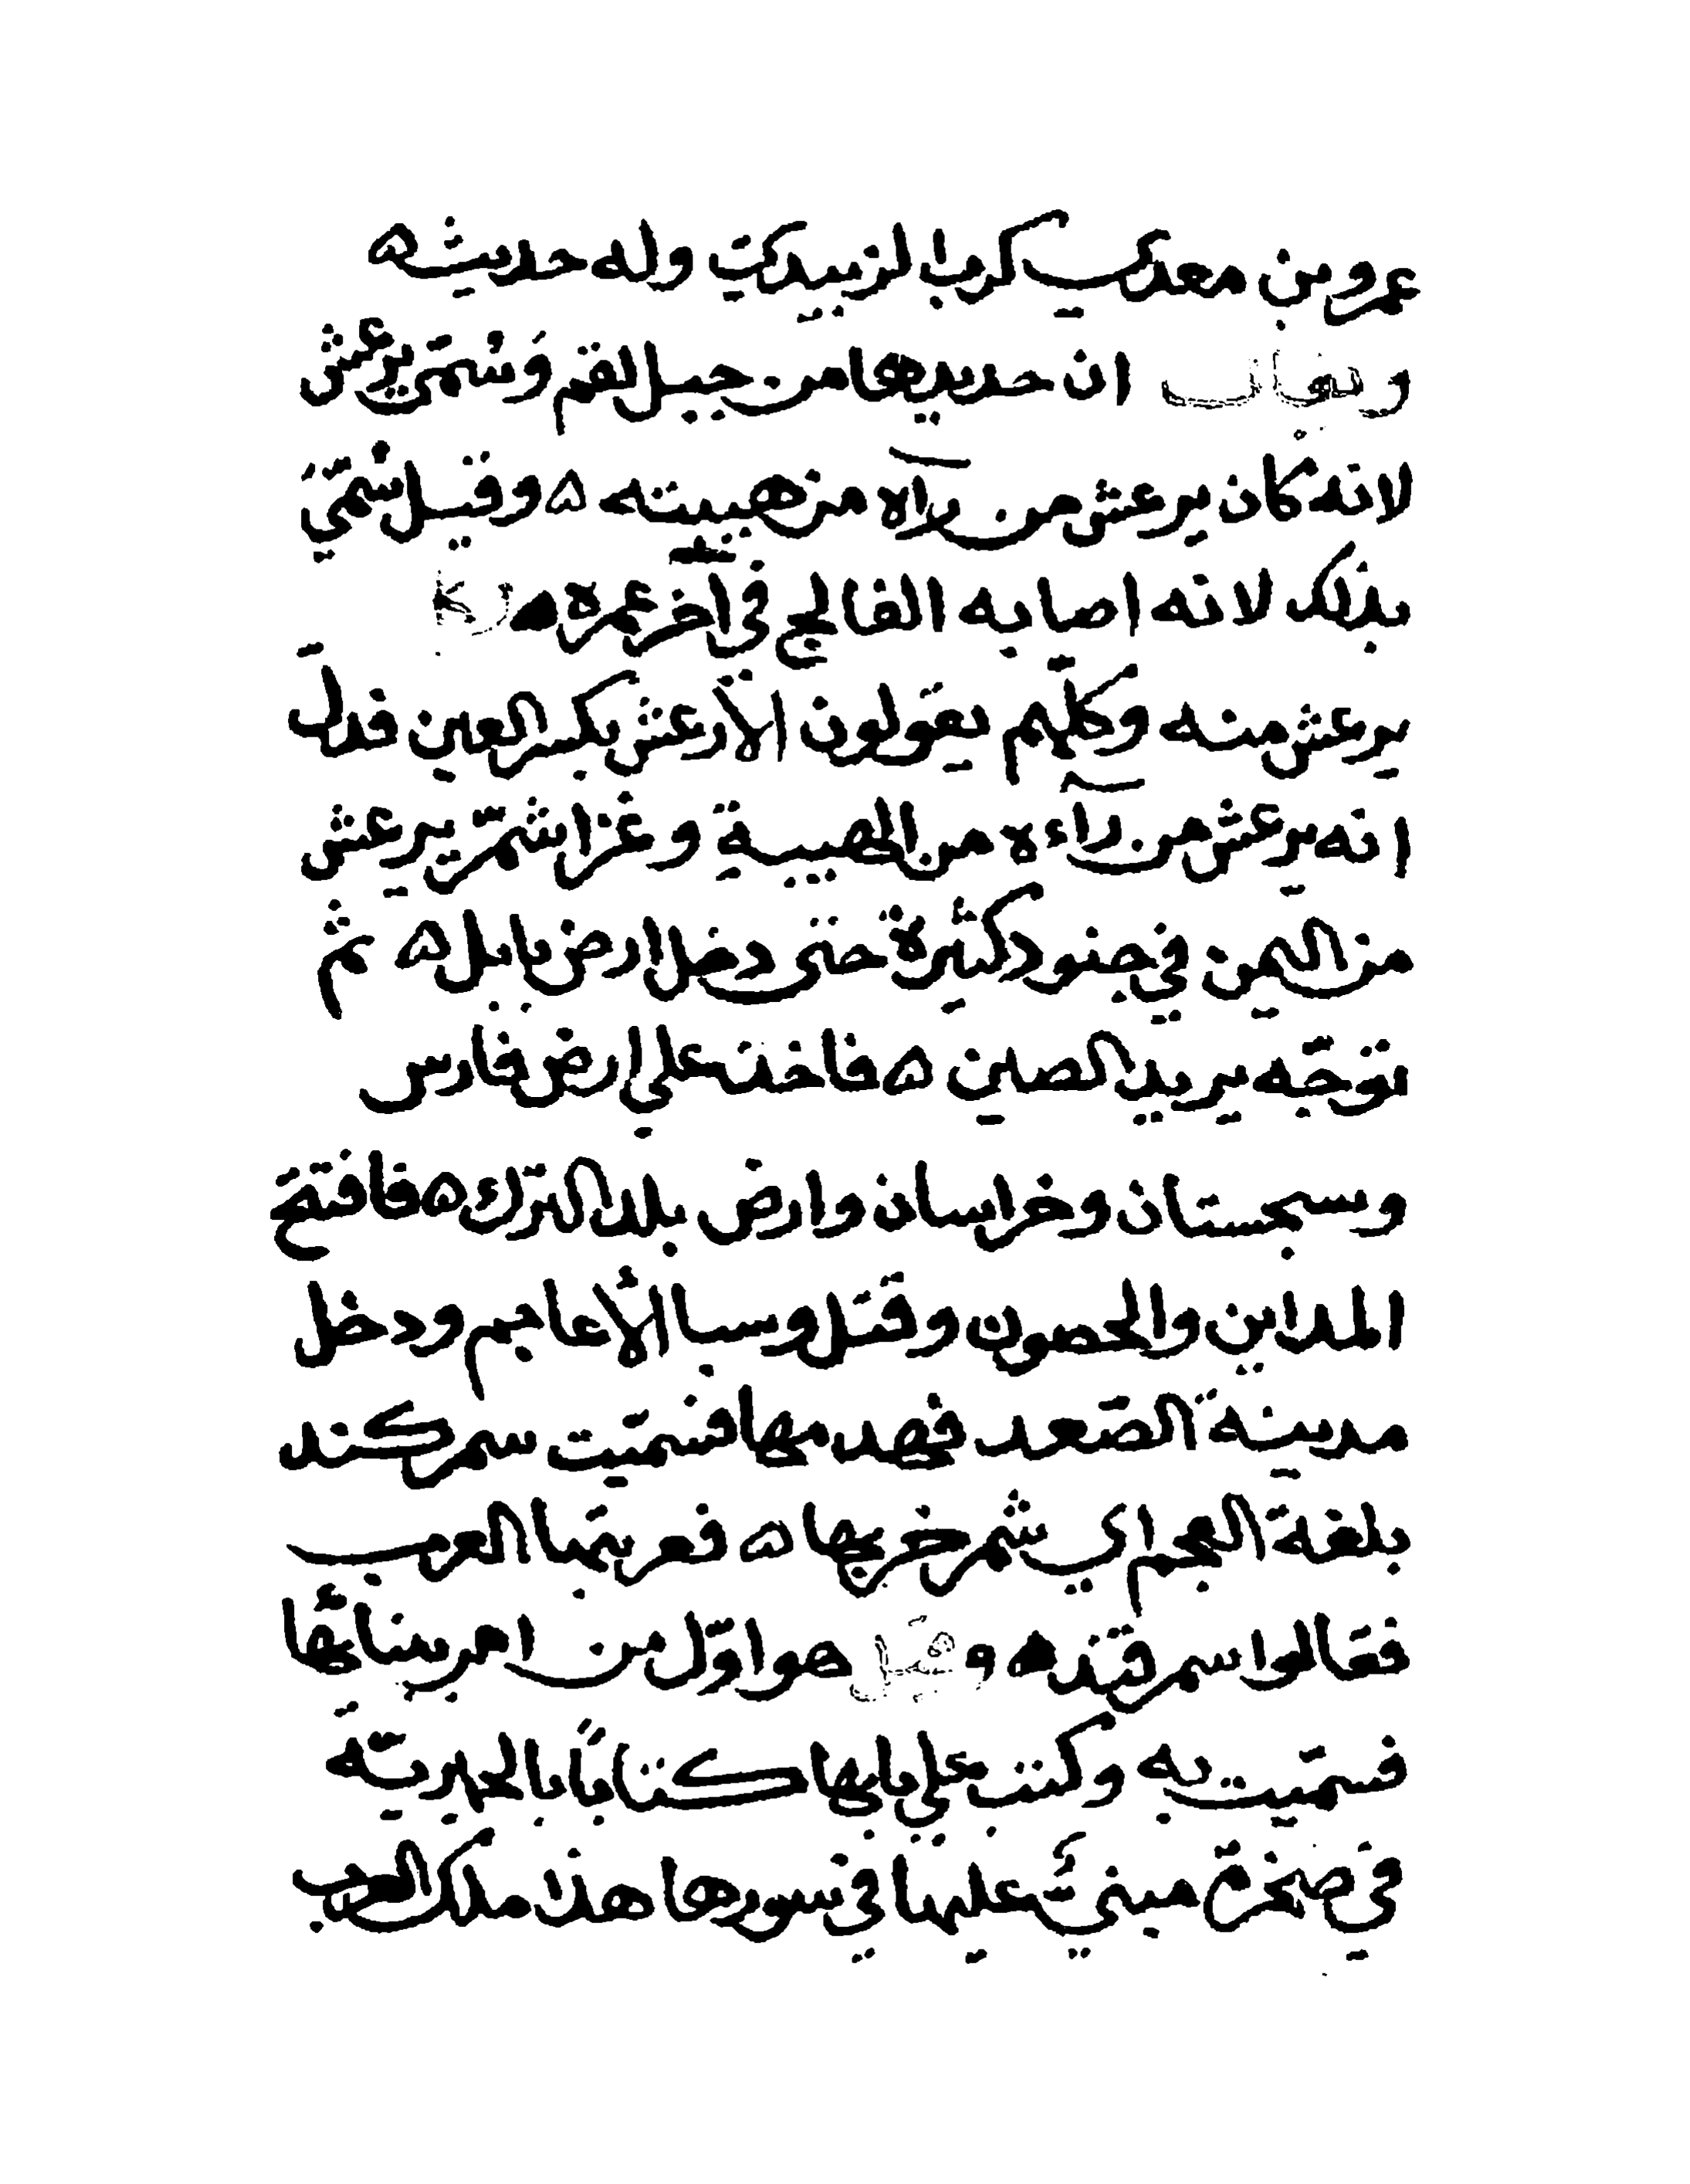 عمرو بن معدي كرب الزبيدي وله حديث ه
ويقال ان حديدها من جبل لقم وَسُمّى يرعش
لانه كان يرعش من رآه من هيبته ه وقيل سُمّيَ
بذلك لانه اصابه الفالج في آخر عمره ه
يرعش منه وكلّهم يقولون الأرعش بكسر العين فدلّ
انه يرعش من رآءه من الهيبة وغزا شمّر يرعش
من اليمن في جنود كثيرة حتى دخل ارض بابل ه ثم
توجّه يريد الصين ه فاخذ على ارض فارس
وسجستان وخراسان وارض بلد الترك ه فافتتح
المداين والحصون وقتل وسبا الأعاجم ودخل
مدينة الصّعد فهدمها فسمّيت سمركند
بلغة العجم اي شمر خربها ه فعربتها العرب
فقالوا سمرقند ه وقيل هو اوّل من امر ببنائها
فسمّيت به وكتب على بابها كتاباً بالحميريّة
في صخرة مبنيّ عليها في سورها هذا ملك العرب